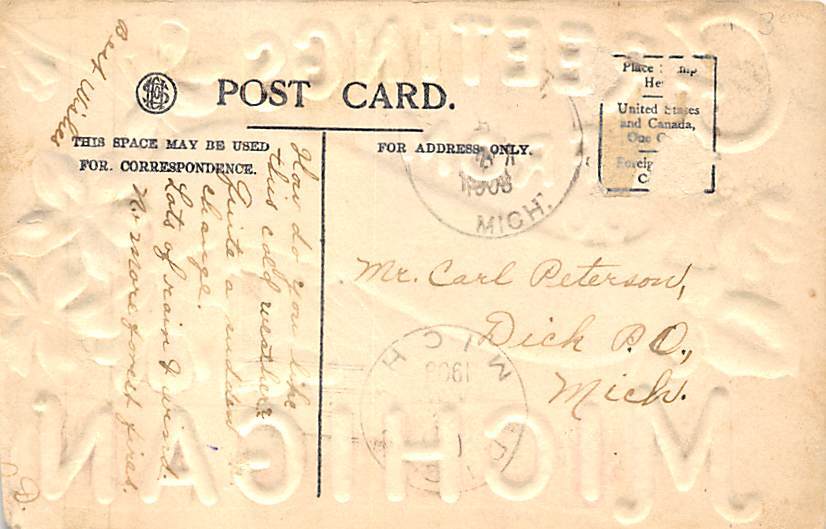 POST CARD.
THIS SPACE MAY BE USED
FOR CORRESPONDENCE.
FOR ADDRESS ONLY.
Place
United States
and Canada,
One
1908
MICH.
Best Wishes
How do you like
this cold weather
Quite a sudden
change.
Lots of rain & wind.
No more forest fires.
D.
Mr. Carl Peterson,
Dick P.O.,
Mich.
MICH
1908
GREETINGS
FROM
MICHIGAN